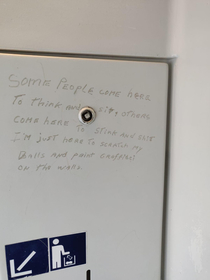 Some People come here
To Think and sit, others
come here to stink and shit
I'm just here to scratch my
Balls and paint
on the walls